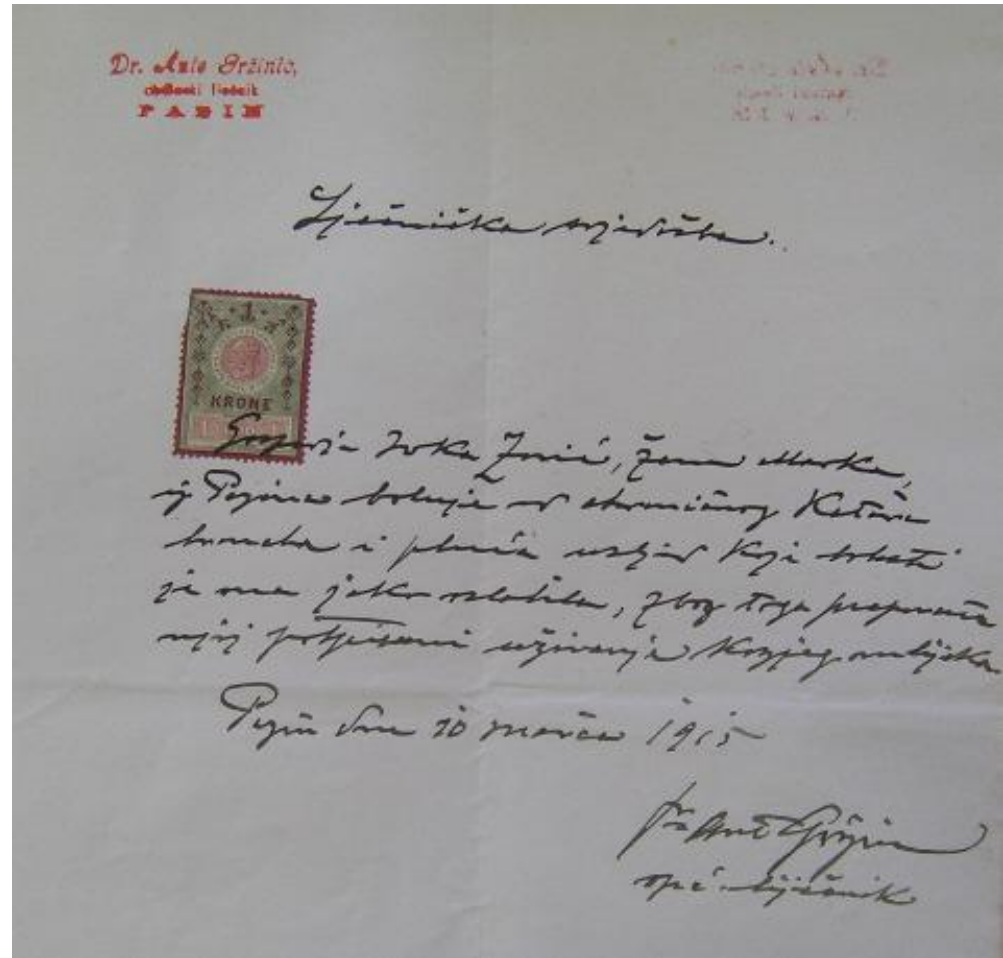 Dr. Ante Gržinić,
općinski liečnik
PAZIN
Liječnička svjedočba.
1
KRONE
Gospodja Ivka Zović, žena Marka,
iz Pazina boluje od chroničnog Katara
broncha i pluća usljed koje bolesti
je ona jako oslabila, zbog toga preporuča
njoj potpisani uživanje Kozjeg mlijeka.
Pazin dne 10 marča 1915
Dr Ante Gržinić
opć. liječnik